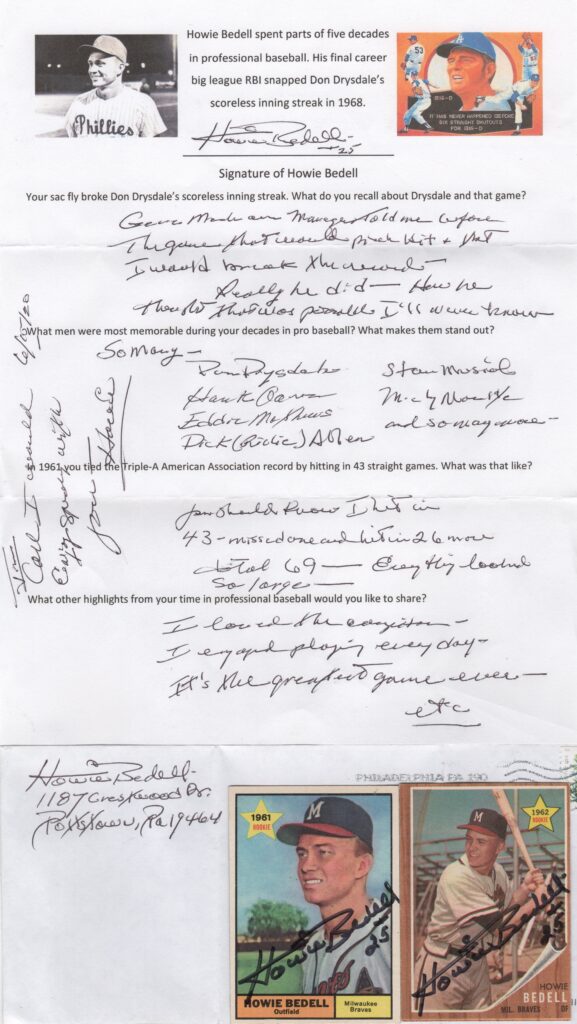 Howie Bedell spent parts of five decades
in professional baseball. His final career
big league RBI snapped Don Drysdale's
scoreless inning streak in 1968.
Phillies
53
IT HAS NEVER HAPPENED BEFORE
SIX STRAIGHT SHUTOUTS
Howie Bedell
25
Signature of Howie Bedell
Your sac fly broke Don Drysdale's scoreless inning streak. What do you recall about Drysdale and that game?
Gene Mauch our Manager told me before
The game that I would pinch hit & that
I would break the record —
Really he did — How he
thought that was possible I'll never know
What men were most memorable during your decades in pro baseball? What makes them stand out?
So Many —
Don Drysdale Stan Musial
Hank Aaron Micky Mantle
Eddie Mathews and so many more —
Dick (Richie) Allen
In 1961 you tied the Triple-A American Association record by hitting in 43 straight games. What was that like?
you should know I hit in
43 - missed one and hit in 26 more
total 69 — Everything looked
So large —
What other highlights from your time in professional baseball would you like to share?
I loved the
I enjoyed playing every day —
It's the greatest game ever —
etc
6/12/20
Enjoy with
your
Howie Bedell
1187 Crestwood Dr.
Pottstown, Pa 19464
PHILADELPHIA PA 190
1961
ROOKIE
M
Howie Bedell
25
HOWIE BEDELL
Outfield
Milwaukee
Braves
1962
ROOKIE
M
Howie Bedell
25
HOWIE
BEDELL
MIL. BRAVES OF